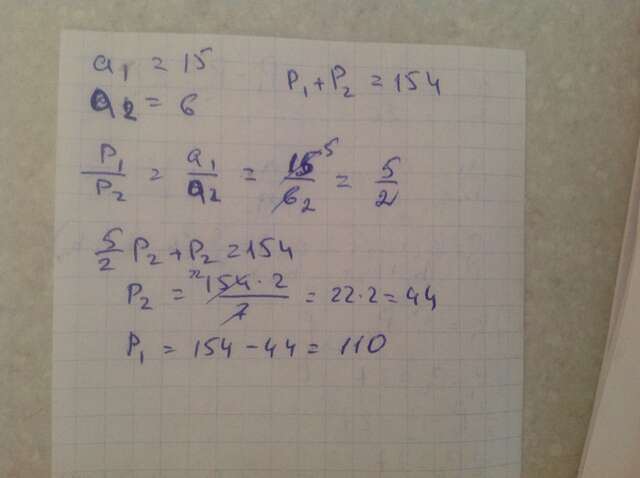 a₁ = 15
a₂ = 6
P₁ + P₂ = 154
P₁/P₂ = a₁/a₂ = 15 5/6 2 = 5/2
5/2 P₂ + P₂ = 154
P₂ = 22 154 · 2/7 = 22 · 2 = 44
P₁ = 154 - 44 = 110